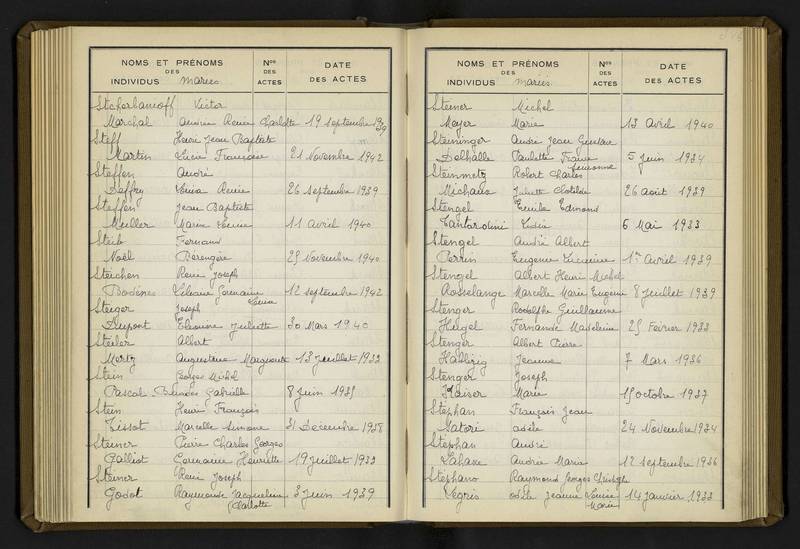 NOMS ET PRÉNOMS
DES
INDIVIDUS mariés
Nos
DES
ACTES
DATE
DES ACTES
Victor
Marchal Andrée Renée Charlotte 19 septembre 1939
Steff Henri Jean Baptiste
Martin Lucie Françoise 21 Novembre 1942
Steffen André
Renée 26 septembre 1939
Steffen Jean Baptiste
Muller Marie Louise 11 Avril 1940
Steib Fernand
Noël Bérengère 25 Novembre 1940
Steichen René Joseph
Germaine Louise 12 septembre 1942
Steiger Joseph
Dupont Juliette 30 Mars 1940
Steiler Albert
Augustine Marguerite 13 Juillet 1933
Stein Georges Michel
Pascal Gabrielle 8 Juin 1935
Stein Henri François
Tissot Marcelle Simone 31 Décembre 1938
Steiner Pierre Charles Georges
Galliot Germaine Henriette 19 Juillet 1933
Steiner René Joseph
Godot Raymonde Jacqueline 3 Juin 1939
Charlotte
NOMS ET PRÉNOMS
DES
INDIVIDUS mariés
Nos
DES
ACTES
DATE
DES ACTES
Steiner Michel
Mayer Marie 13 Avril 1940
Steininger André Jean Gustave
Delhalle Paulette France 5 Juin 1934
Steinmetz Robert Charles
Michaux Juliette Clotilde 26 Août 1939
Stengel Emile Edmond
Cantarolini Lidia 6 Mai 1933
Stengel André Albert
Perrin Eugénie Lucienne 1er Avril 1939
Stengel Albert Henri Michel
Rosselange Marcelle Marie Eugénie 8 Juillet 1939
Stenger Rodolphe Guillaume
Hugel Fernande Madeleine 25 Février 1933
Stenger Albert Pierre
Jeanne 7 Mars 1936
Stenger Joseph
Kaiser Marie 15 octobre 1937
Stephan François Jean
Natori Adèle 24 Novembre 1934
Stephan André
Lahaxe Andrée Marie 12 septembre 1936
Stéphano Raymond Georges Christophe
Legris Odile Jeanne Louise 14 Janvier 1933
Marie